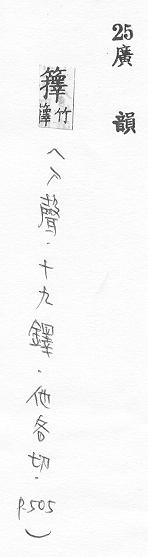 25廣韻
籜竹籜
(入聲．十九鐸．他各切．p.505)